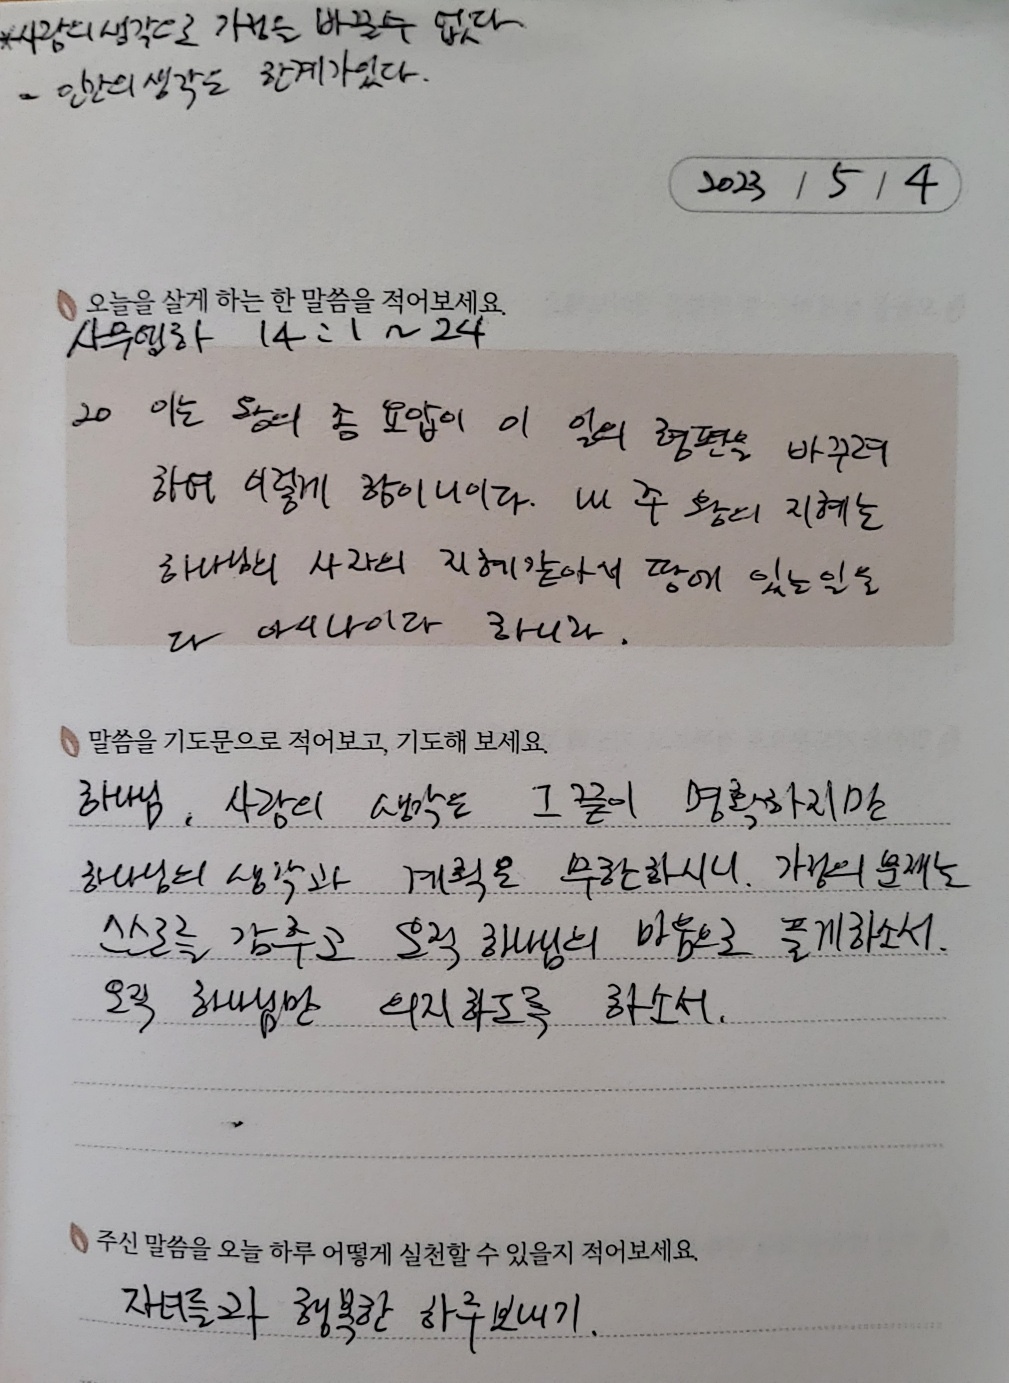 *사람의 생각으로 가정을 바꿀수 없다
- 인간의 생각은 한계가있다.
2023 / 5 / 4
오늘을 살게 하는 한 말씀을 적어보세요.
사무엘하 14:1~24
20 이는 왕의 종 요압이 이 일의 형편을 바꾸려
하여 이렇게 함이니이다. 내 주 왕의 지혜는
하나님의 사자의 지혜같아서 땅에 있는일을
다 아시나이다 하니라.
말씀을 기도문으로 적어보고, 기도해 보세요.
하나님, 사람의 생각은 그 끝이 명확하지만
하나님의 생각과 계획은 무한하시니. 가정의 문제는
스스로를 감추고 오직 하나님의 마음으로 풀게하소서.
오직 하나님만 의지하도록 하소서.
주신 말씀을 오늘 하루 어떻게 실천할 수 있을지 적어보세요.
자녀들과 행복한 하루보내기.